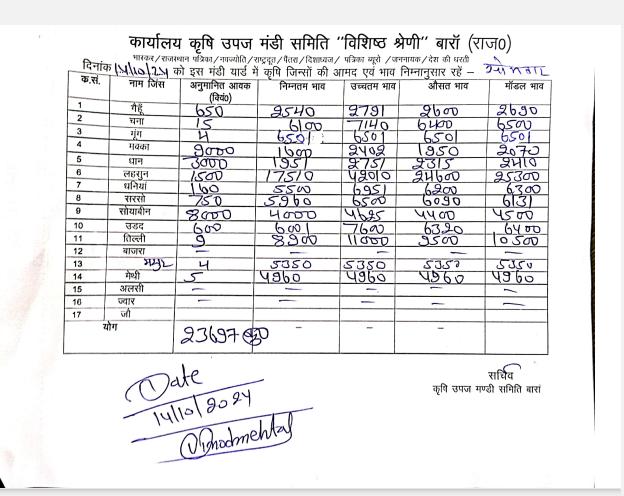 कार्यालय कृषि उपज मंडी समिति "विशिष्ठ श्रेणी" बारॉ (राज0)
भास्कर/राजस्थान पत्रिका/नवज्योति/राष्ट्रदूत/पैंतरा/दिशाध्वज/ पत्रिका ब्यूरो /जननायक/देश की धरती
दिनांक 14/10/24 को इस मंडी यार्ड में कृषि जिन्सों की आमद एवं भाव निम्नानुसार रहें – सोमवार
क.सं. नाम जिंस अनुमानित आवक (क्विं0) निम्नतम भाव उच्चतम भाव औसत भाव मॉडल भाव
1 गैहूॅं 650 2540 2791 2600 2690
2 चना 15 6100 7140 6400 6500
3 मूंग 4 6501 6501 6501 6501
4 मक्का 9000 1600 2402 1950 2070
5 धान 3000 1951 2751 2315 2410
6 लहसुन 1500 17510 42010 24600 25300
7 धनियां 160 5500 6951 6200 6300
8 सरसो 750 5960 6500 6090 6131
9 सोयाबीन 8000 4000 4625 4400 4500
10 उडद 600 6001 7600 6320 6400
11 तिल्ली 9 8900 11000 9500 10500
12 बाजरा – – – – –
13 मसूर 4 5350 5350 5350 5350
14 मेथी 5 4960 4960 4960 4960
15 अलसी – – – – –
16 ज्वार – – – – –
17 जौ
योग 23697 – – – –
सचिव
कृषि उपज मण्डी समिति बारां
Date
14/10/2024